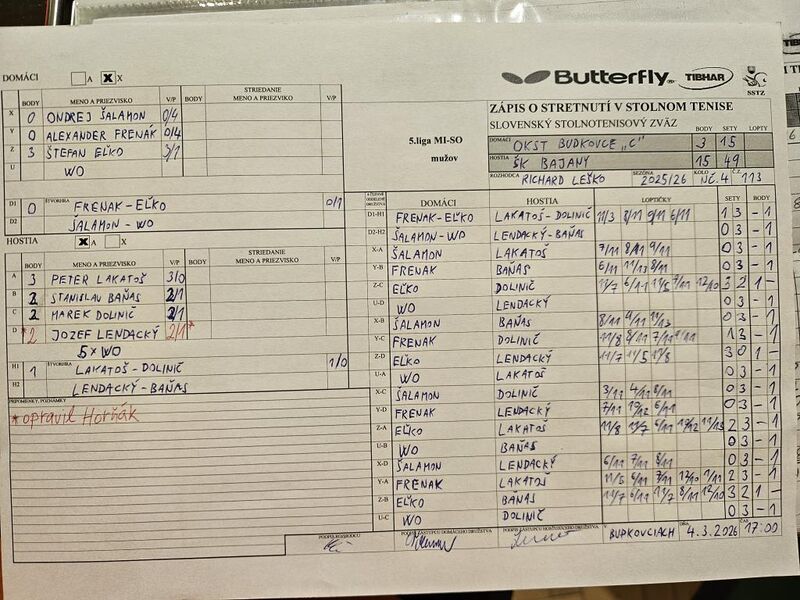 DOMÁCI A X X
Butterfly TIBHAR SSTZ
BODY MENO A PRIEZVISKO V/P BODY STRIEDANIE MENO A PRIEZVISKO V/P
X 0 ONDREJ ŠALAMON 0/4
Y 0 ALEXANDER FRENÁK 0/4
Z 3 ŠTEFAN EĽKO 3/1
U WO
ZÁPIS O STRETNUTÍ V STOLNOM TENISE
SLOVENSKÝ STOLNOTENISOVÝ ZVÄZ
5.liga MI-SO
mužov
DOMÁCI OKST BUDKOVCE „C" BODY 3 SETY 15 LOPTY
HOSTIA ŠK BAJANY 15 49
ROZHODCA RICHARD LEŠKO SEZÓNA 2025/26 KOLO NČ.4 Č.Z. 113
D1 0 ŠTVORHRA FRENAK-EĽKO 0/1
D2 ŠALAMON - WO
HOSTIA X A X
BODY MENO A PRIEZVISKO V/P BODY STRIEDANIE MENO A PRIEZVISKO V/P
A 3 PETER LAKATOŠ 3/0
B 2 STANISLAV BAŇAS 2/1
C 2 MAREK DOLINIČ 2/1
D *2 JOZEF LENDACKÝ 2/1*
5 x WO
H1 1 ŠTVORHRA LAKATOŠ - DOLINIČ 1/0
H2 LENDACKÝ-BAŇAS
PRIPOMIENKY, POZNÁMKY
*opravil Horňák
DOMÁCI HOSTIA LOPTIČKY SETY BODY
D1-H1 FRENAK-EĽKO LAKATOŠ-DOLINIČ 11/3 8/11 9/11 6/11 1 3 - 1
D2-H2 ŠALAMON-WO LENDACKÝ-BAŇAS 0 3 - 1
X-A ŠALAMON LAKATOŠ 7/11 8/11 9/11 0 3 - 1
Y-B FRENAK BAŇAS 6/11 11/13 8/11 0 3 - 1
Z-C EĽKO DOLINIČ 11/7 6/11 11/5 7/11 12/10 3 2 1 -
U-D WO LENDACKÝ 0 3 - 1
X-B ŠALAMON BAŇAS 8/11 9/11 11/13 0 3 - 1
Y-C FRENAK DOLINIČ 11/8 8/11 7/11 1 3 - 1
Z-D EĽKO LENDACKÝ 11/7 11/5 11/8 3 0 1 -
U-A WO LAKATOŠ 0 3 - 1
X-C ŠALAMON DOLINIČ 3/11 4/11 8/11 0 3 - 1
Y-D FRENAK LENDACKÝ 7/11 10/12 6/11 0 3 - 1
Z-A EĽKO LAKATOŠ 11/8 11/7 6/11 11/13 2 3 - 1
U-B WO BAŇAS 0 3 - 1
X-D ŠALAMON LENDACKÝ 6/11 7/11 8/11 0 3 - 1
Y-A FRENAK LAKATOŠ 11/5 6/11 7/11 12/10 1/11 2 3 - 1
Z-B EĽKO BAŇAS 11/7 6/11 11/7 8/11 12/10 3 2 1 -
U-C WO DOLINIČ 0 3 - 1
PODPIS ROZHODCU PODPIS ZÁSTUPCU DOMÁCEHO DRUŽSTVA PODPIS ZÁSTUPCU HOSŤUJÚCEHO DRUŽSTVA V BUDKOVCIACH DŇA 4.3.2026 17:00